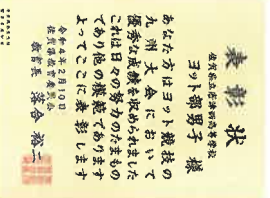 表彰状
佐賀県立唐津西高等学校
ヨット部男子 様
あなた方はヨット競技の
九州大会において
優秀な成績を収められました
これは日々の努力のたまもの
であり他の模範であります
よってここに表彰します
令和4年2月10日
佐賀県教育委員会
教育長 落合裕二